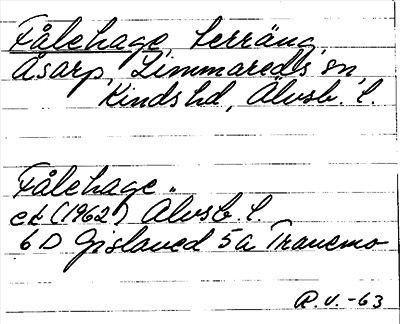 Fålehage, terräng,
Åsarp, Limmareds sn,
Kinds hd, Älvsb. l.
Fålehage
ek (1962) Älvsb. l.
6 D Gislaved 5a Tranemo
R.V. -63